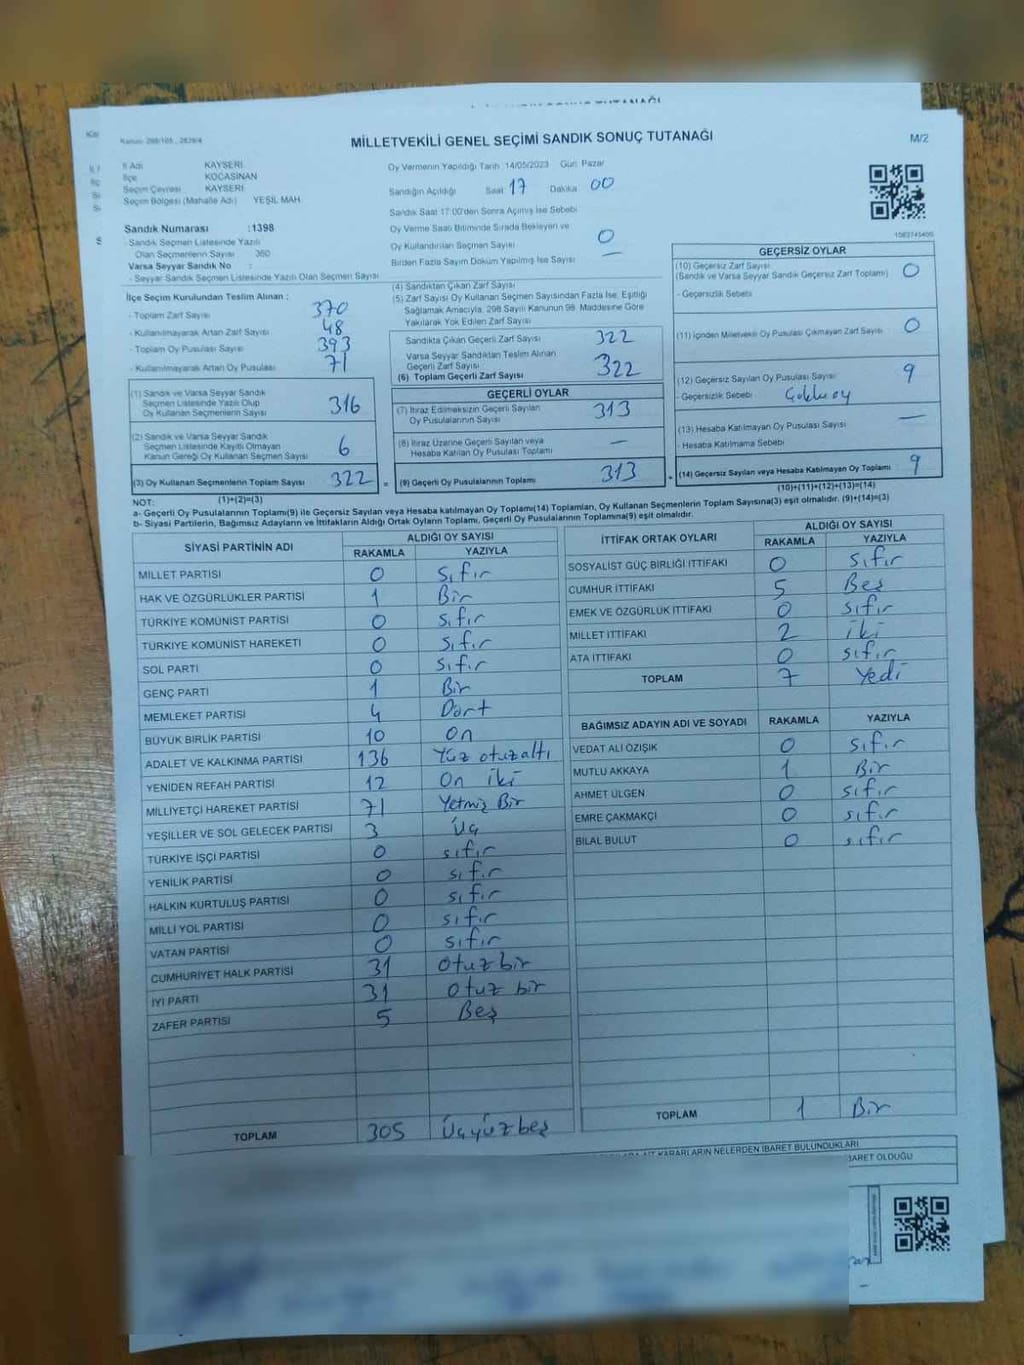 MİLLETVEKİLİ GENEL SEÇİMİ SANDIK SONUÇ TUTANAĞI
M/2
İl Adı KAYSERİ
İlçe KOCASİNAN
Seçim Çevresi KAYSERİ
Seçim Bölgesi (Mahalle Adı) YEŞİL MAH.
Oy Vermenin Yapıldığı Tarih 14/05/2023 Gün: Pazar
Sandığın Açıldığı Saat 17 Dakika 00
Sandık Saat 17:00'den Sonra Açılmış İse Sebebi
Sandık Numarası : 1398
Sandık Seçmen Listesinde Yazılı
Olan Seçmenlerin Sayısı 360
Varsa Seyyar Sandık No :
- Seyyar Sandık Seçmen Listesinde Yazılı Olan Seçmen Sayısı
Oy Verme Saati Bitiminde Sırada Bekleyen ve
Oy Kullandırılan Seçmen Sayısı 0
Birden Fazla Sayım Döküm Yapılmış İse Sayısı —
İlçe Seçim Kurulundan Teslim Alınan :
- Toplam Zarf Sayısı 370
- Kullanılmayarak Artan Zarf Sayısı 48
- Toplam Oy Pusulası Sayısı 393
- Kullanılmayarak Artan Oy Pusulası 71
(1) Sandık ve Varsa Seyyar Sandık
Seçmen Listesinde Yazılı Olup
Oy Kullanan Seçmenlerin Sayısı 316
(2) Sandık ve Varsa Seyyar Sandık
Seçmen Listesinde Kayıtlı Olmayan
Kanun Gereği Oy Kullanan Seçmen Sayısı 6
(3) Oy Kullanan Seçmenlerin Toplam Sayısı 322
(4) Sandıktan Çıkan Zarf Sayısı
(5) Zarf Sayısı Oy Kullanan Seçmen Sayısından Fazla İse, Eşitliği
Sağlamak Amacıyla, 298 Sayılı Kanunun 98. Maddesine Göre
Yakılarak Yok Edilen Zarf Sayısı
Sandıkta Çıkan Geçerli Zarf Sayısı 322
Varsa Seyyar Sandıktan Teslim Alınan
Geçerli Zarf Sayısı
(6) Toplam Geçerli Zarf Sayısı 322
GEÇERLİ OYLAR
(7) İtiraz Edilmeksizin Geçerli Sayılan
Oy Pusulalarının Sayısı 313
(8) İtiraz Üzerine Geçerli Sayılan veya
Hesaba Katılan Oy Pusulası Toplamı —
(9) Geçerli Oy Pusulalarının Toplamı 313
GEÇERSİZ OYLAR
(10) Geçersiz Zarf Sayısı
(Sandık ve Varsa Seyyar Sandık Geçersiz Zarf Toplamı) 0
- Geçersizlik Sebebi
(11) İçinden Milletvekili Oy Pusulası Çıkmayan Zarf Sayısı 0
(12) Geçersiz Sayılan Oy Pusulası Sayısı 9
- Geçersizlik Sebebi
(13) Hesaba Katılmayan Oy Pusulası Sayısı —
- Hesaba Katılmama Sebebi
(14) Geçersiz Sayılan veya Hesaba Katılmayan Oy Toplamı 9
(10)+(11)+(12)+(13)=(14)
NOT: (1)+(2)=(3)
a- Geçerli Oy Pusulalarının Toplamı(9) ile Geçersiz Sayılan veya Hesaba katılmayan Oy Toplamı(14) Toplamları, Oy Kullanan Seçmenlerin Toplam Sayısına(3) eşit olmalıdır. (9)+(14)=(3)
b- Siyasi Partilerin, Bağımsız Adayların ve İttifakların Aldığı Ortak Oyların Toplamı, Geçerli Oy Pusulalarının Toplamına(9) eşit olmalıdır.
SİYASİ PARTİNİN ADI ALDIĞI OY SAYISI
RAKAMLA YAZIYLA
MİLLET PARTİSİ 0 Sıfır
HAK VE ÖZGÜRLÜKLER PARTİSİ 1 Bir
TÜRKİYE KOMÜNİST PARTİSİ 0 Sıfır
TÜRKİYE KOMÜNİST HAREKETİ 0 Sıfır
SOL PARTİ 0 Sıfır
GENÇ PARTİ 1 Bir
MEMLEKET PARTİSİ 4 Dört
BÜYÜK BİRLİK PARTİSİ 10 On
ADALET VE KALKINMA PARTİSİ 136 Yüz otuzaltı
YENİDEN REFAH PARTİSİ 12 On iki
MİLLİYETÇİ HAREKET PARTİSİ 71 Yetmiş Bir
YEŞİLLER VE SOL GELECEK PARTİSİ 3 Üç
TÜRKİYE İŞÇİ PARTİSİ 0 sıfır
YENİLİK PARTİSİ 0 sıfır
HALKIN KURTULUŞ PARTİSİ 0 sıfır
MİLLİ YOL PARTİSİ 0 sıfır
VATAN PARTİSİ 0 sıfır
CUMHURİYET HALK PARTİSİ 31 Otuz bir
İYİ PARTİ 31 Otuz bir
ZAFER PARTİSİ 5 Beş
TOPLAM 305 Üçyüzbeş
İTTİFAK ORTAK OYLARI ALDIĞI OY SAYISI
RAKAMLA YAZIYLA
SOSYALİST GÜÇ BİRLİĞİ İTTİFAKI 0 Sıfır
CUMHUR İTTİFAKI 5 Beş
EMEK VE ÖZGÜRLÜK İTTİFAKI 0 Sıfır
MİLLET İTTİFAKI 2 İki
ATA İTTİFAKI 0 sıfır
TOPLAM 7 Yedi
BAĞIMSIZ ADAYIN ADI VE SOYADI RAKAMLA YAZIYLA
VEDAT ALİ ÖZIŞIK 0 Sıfır
MUTLU AKKAYA 1 Bir
AHMET ÜLGEN 0 sıfır
EMRE ÇAKMAKÇI 0 sıfır
BİLAL BULUT 0 sıfır
TOPLAM 1 Bir
KARARLARIN NELERDEN İBARET BULUNDUKLARI
İBARET OLDUĞU